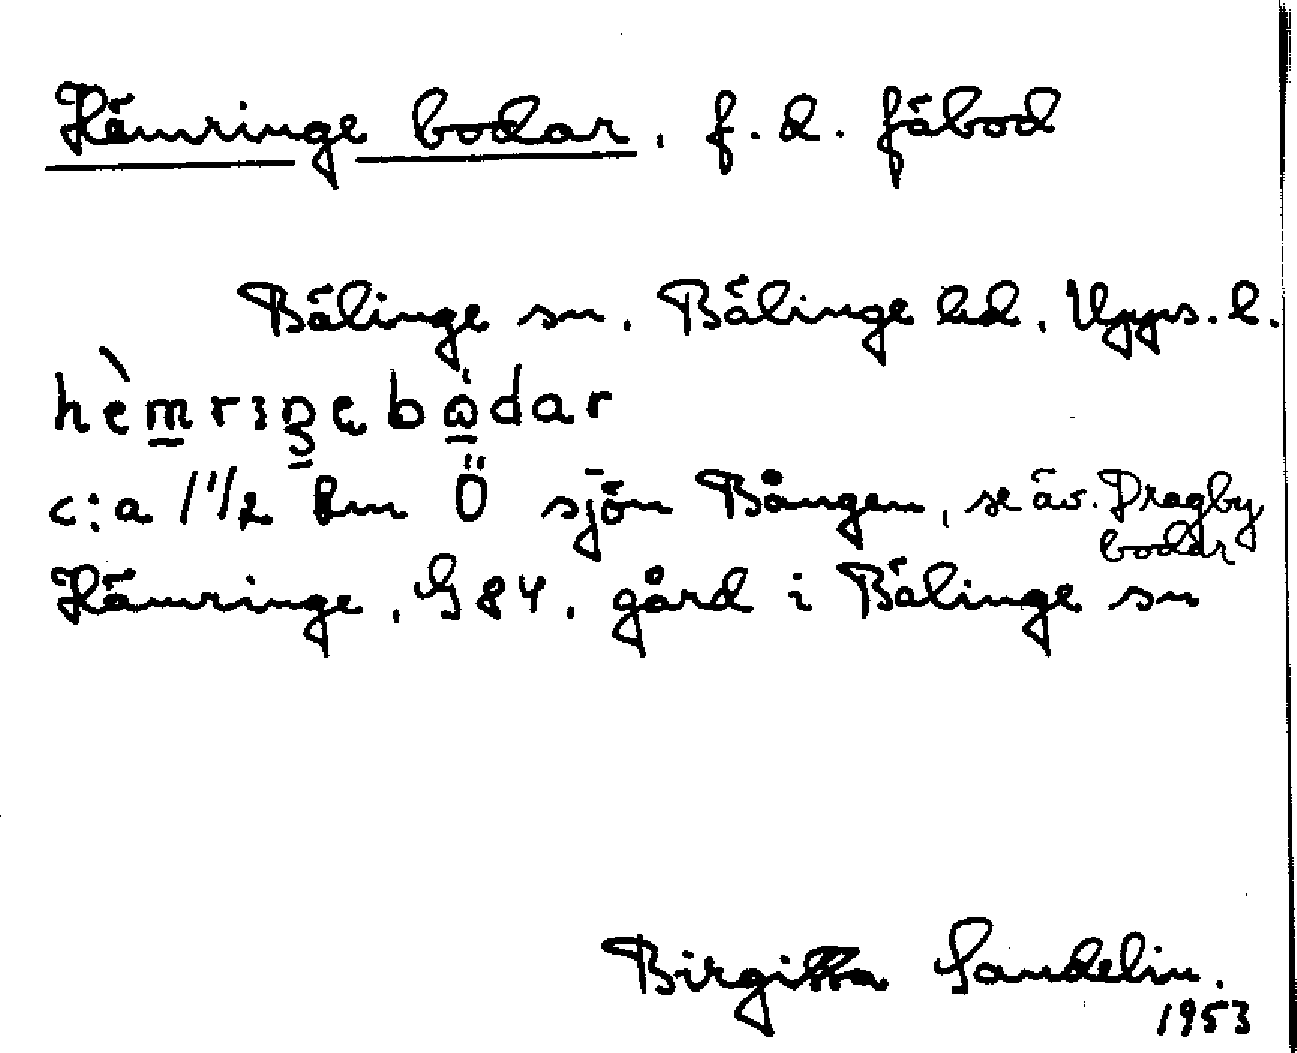 Hämringe bodar. f.d. fäbod
Bälinge sn. Bälinge hd. Upps. l.
hèmrıŋɛbɷ̀dar
c:a 1 1/2 km Ö sjön Bången, se äv. Dragby
bodar
Hämringe. G84. gård i Bälinge sn
Birgitta Sandelin.
1953